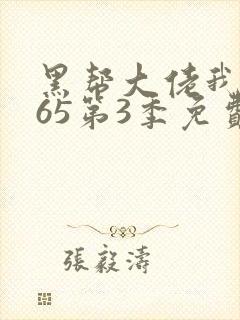 黑帮大佬我
65第3季免費
張毅濤